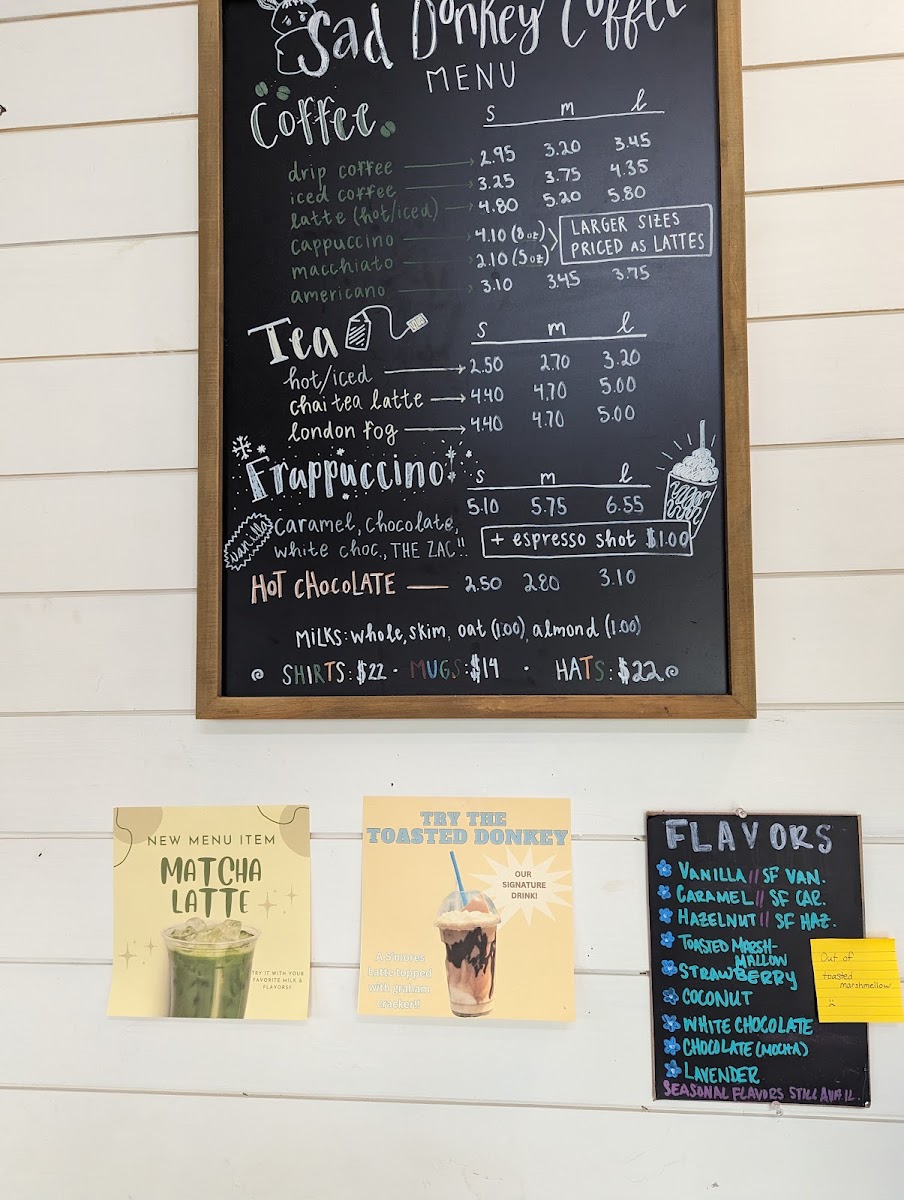 Sad Donkey Coffee
MENU
Coffee
s m l
drip coffee 2.95 3.20 3.45
iced coffee 3.25 3.75 4.35
latte (hot/iced) 4.80 5.20 5.80
cappuccino 4.10 (8 oz)
macchiato 2.10 (5 oz)
LARGER SIZES
PRICED AS LATTES
americano 3.10 3.45 3.75
Tea
s m l
hot/iced 2.50 2.70 3.20
chai tea latte 4.40 4.70 5.00
london fog 4.40 4.70 5.00
Frappuccino
s m l
5.10 5.75 6.55
vanilla
caramel, chocolate,
white choc., THE ZAC!!
+ espresso shot $1.00
HOT CHOCOLATE 2.50 2.80 3.10
MILKS: whole, skim, oat (1.00), almond (1.00)
SHIRTS: $22 · MUGS: $14 · HATS: $22
NEW MENU ITEM
MATCHA
LATTE
TRY IT WITH YOUR
FAVORITE MILK &
FLAVORS!!
TRY THE
TOASTED DONKEY
OUR
SIGNATURE
DRINK!
A S'mores
Latte topped
with graham
cracker!!
FLAVORS
VANILLA // SF VAN.
CARAMEL // SF CAR.
HAZELNUT // SF HAZ.
TOASTED MARSH-
MALLOW
STRAWBERRY
COCONUT
WHITE CHOCOLATE
CHOCOLATE (MOCHA)
LAVENDER
SEASONAL FLAVORS STILL AVAIL.
Out of
toasted
marshmellow